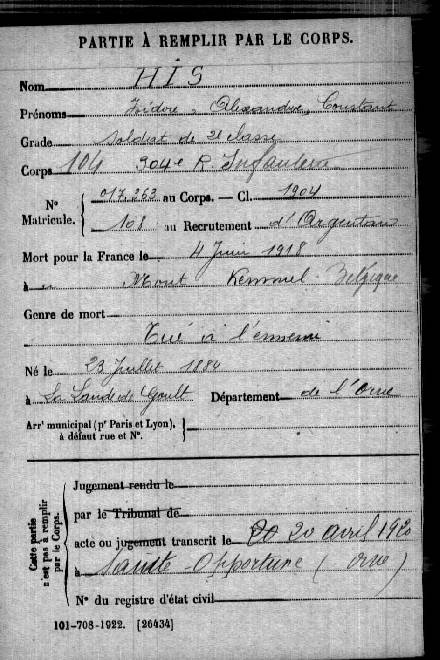 PARTIE À REMPLIR PAR LE CORPS.
Nom HIS
Prénoms Isidore, Alexandre, Constant
Grade Soldat de 2e classe
Corps 104 304e R. Infanterie
N° Matricule. { 017.263 au Corps. — Cl. 1904
108 au Recrutement d'Argentan
Mort pour la France le 4 Juin 1918
à Mont Kemmel - Belgique
Genre de mort
Tué à l'ennemi
Né le 23 Juillet 1884
à La Lande de Goult Département de l'Orne
Arrt municipal (pr Paris et Lyon),
à défaut rue et N°. }
Cette partie n'est pas à remplir par le Corps.
Jugement rendu le
par le Tribunal de
acte ou jugement transcrit le 20 20 avril 1920
à Sainte-Opportune (Orne)
N° du registre d'état civil
101-708-1922. [26434]